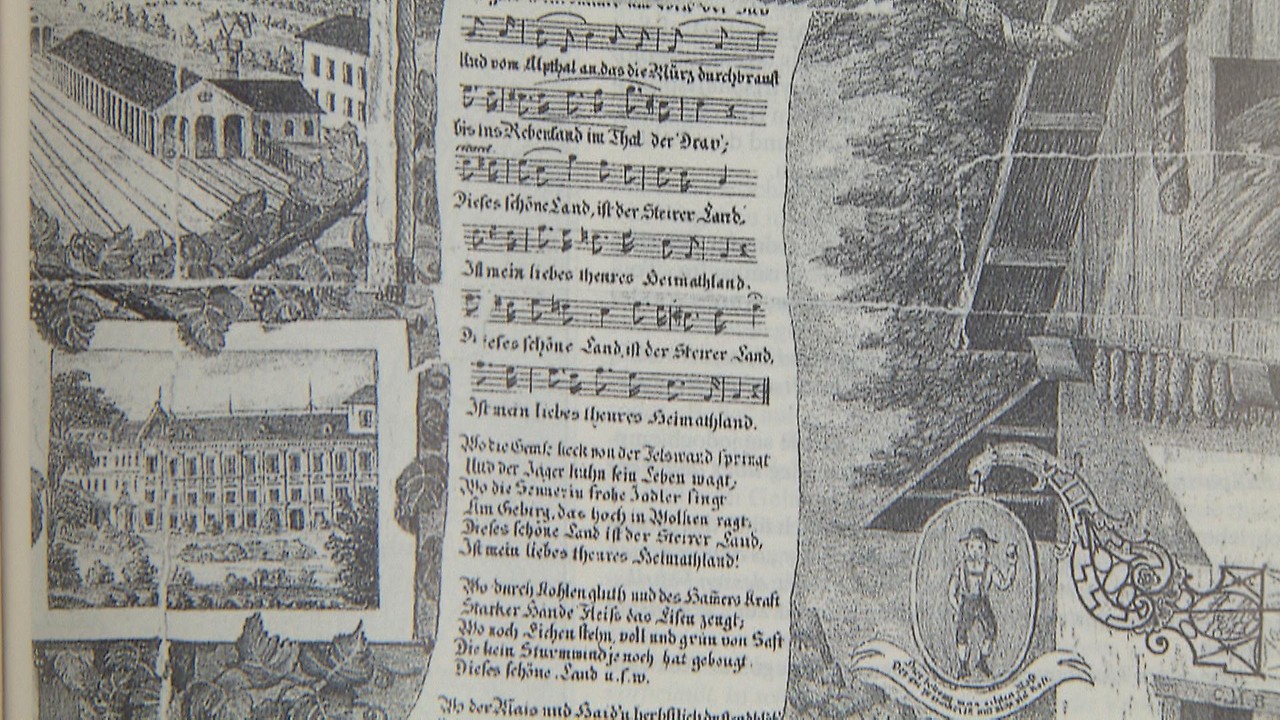 Und vom Alpthal an, das die Mürz durchbraust
bis ins Rebenland im Thal der Drav';
Dieses schöne Land, ist der Steirer Land,
Ist mein liebes theures Heimathland.
Dieses schöne Land, ist der Steirer Land,
Ist mein liebes theures Heimathland.
Wo die Gemse keck von der Felswand springt
Und der Jäger kühn sein Leben wagt;
Wo die Sennerin frohe Jodler singt
Am Gebirg, das hoch in Wolken ragt,
Dieses schöne Land ist der Steirer Land,
Ist mein liebes theures Heimathland!
Wo durch Kohlengluth und des Ham̄ers Kraft
Starker Hände Fleiß das Eisen zeugt;
Wo noch Eichen stehn, voll und grün von Saft
Die kein Sturmwind je noch hat gebeugt
Dieses schöne Land u.s.w.
Wo der Mais und Haid'n
C.M.B